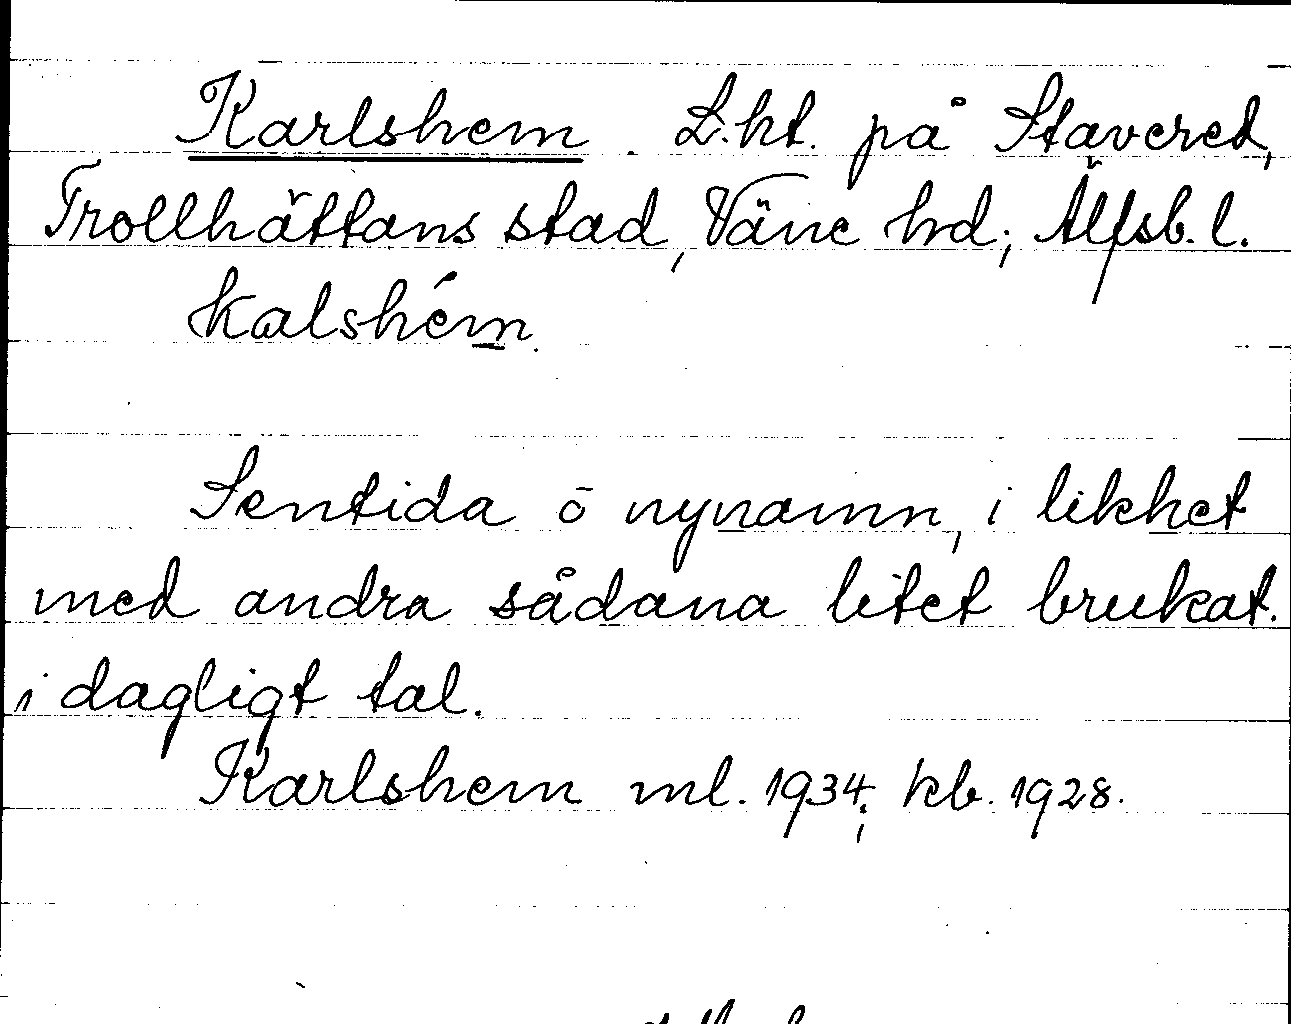 Karlshem. L.ht. på Stavered,
Trollhättans stad, Väne hd; Älfsb. l.
kalshém.
Sentida ō nynamn, i likhet
med andra sådana litet brukat.
i dagligt tal.
Karlshem ml. 1934; kb. 1928.